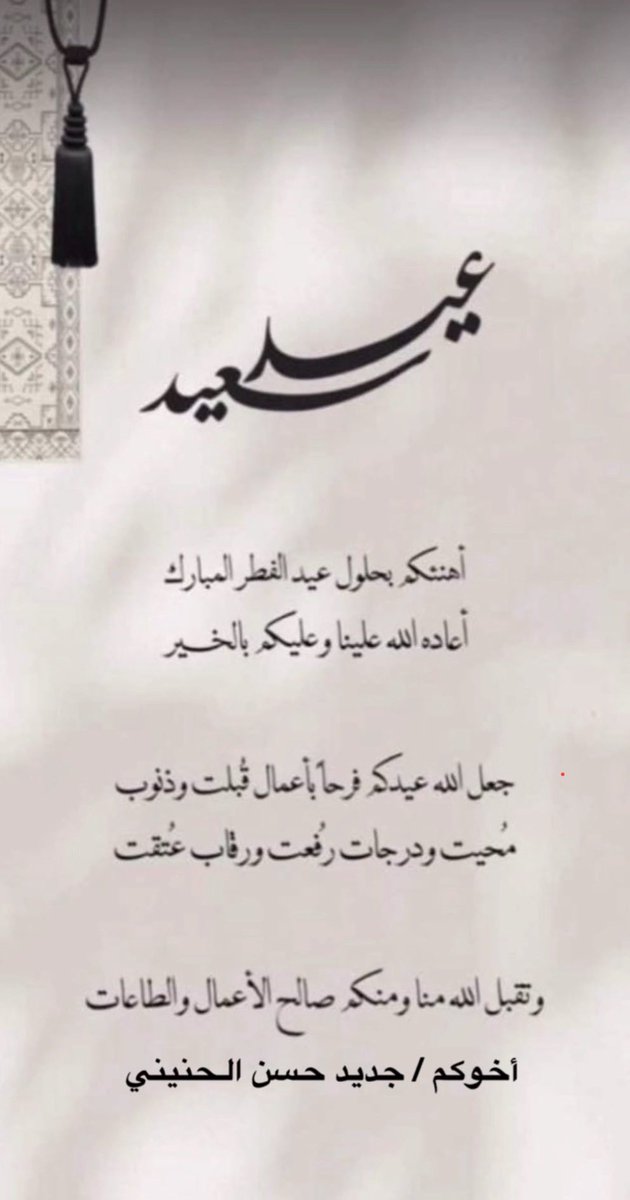 عيد
سعيد
أهنئكم بحلول عيد الفطر المبارك
أعاده الله علينا وعليكم بالخير
جعل الله عيدكم فرحاً بأعمال قُبلت وذنوب
مُحيت ودرجات رُفعت ورقاب عُتقت
وتقبل الله منا ومنكم صالح الأعمال والطاعات
أخوكم / جديد حسن الحنيني